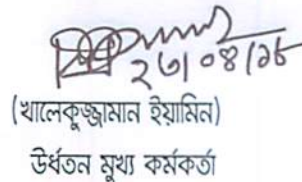 ২৩/০৪/১৮
(খালেকুজ্জামান ইয়ামিন)
উর্ধতন মুখ্য কর্মকর্তা